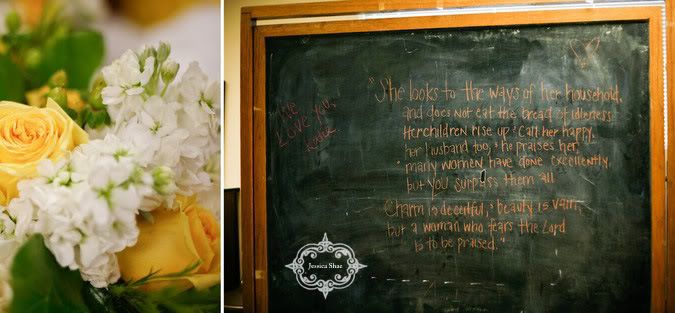 We
Love you,
"She looks to the ways of her household,
and does not eat the bread of idleness.
Her children rise up & call her happy,
her husband too, & he praises her,
"many women have done excellently,
but you surpass them all.
Charm is deceitful, & beauty is vain,
but a woman who fears the Lord
is to be praised."
Jessica Shae